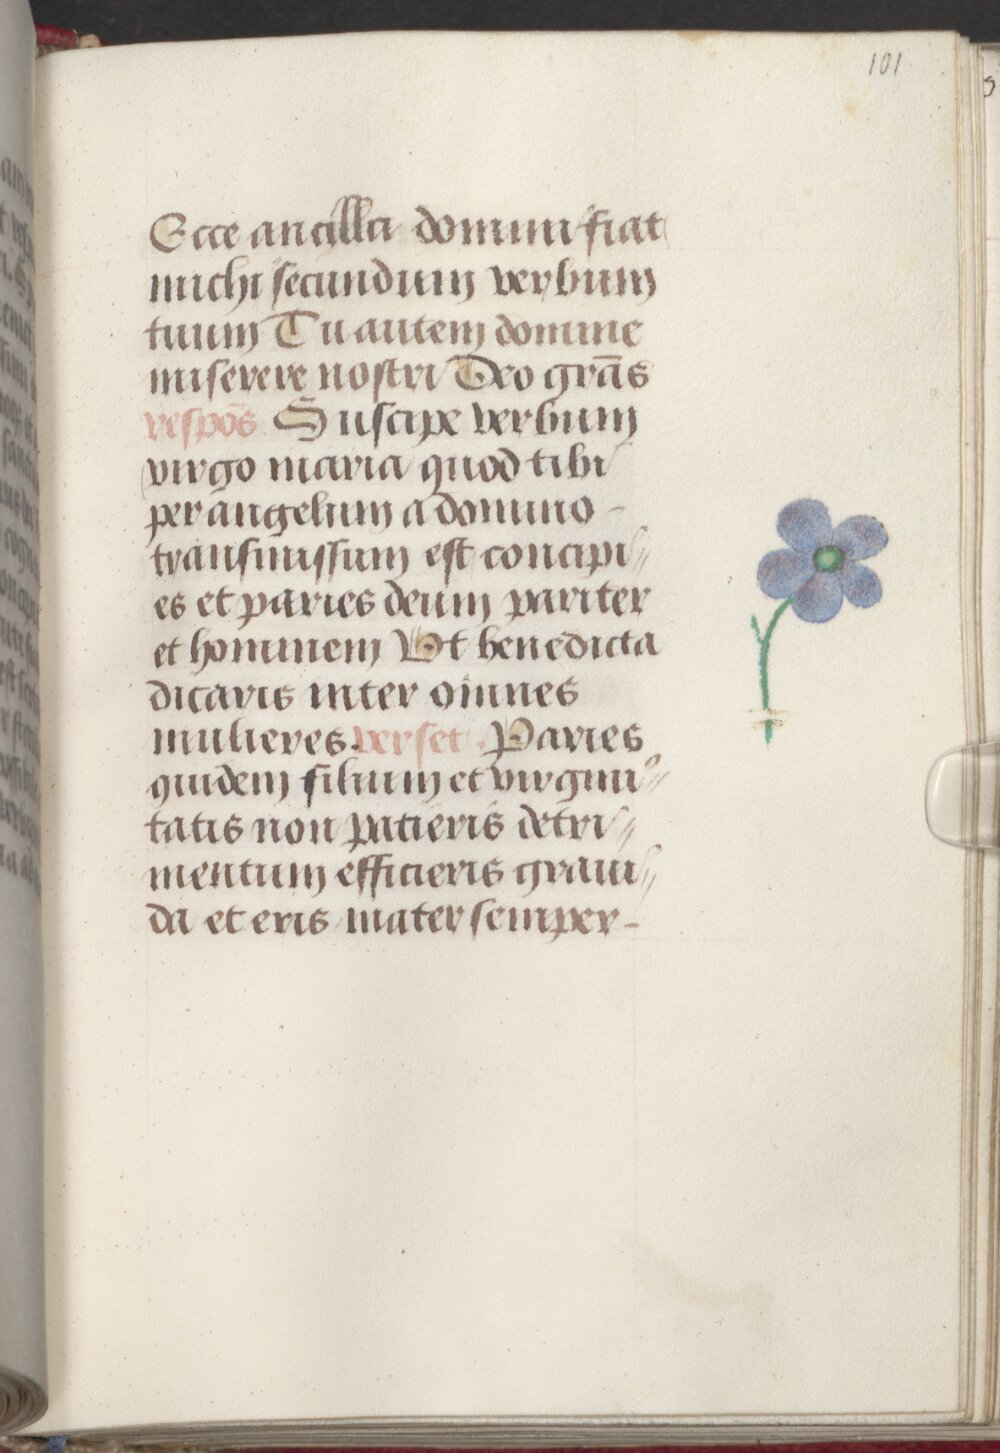 101
Ecce ancilla domini fiat
michi secundum verbum
tuum Tu autem domine
miserere nostri Deo grās
respōs Suscipe verbum
virgo maria quod tibi
per angelum a domino -
transmissum est concipi//
es et paries deum pariter
et hominem Ut benedicta
dicaris inter omnes
mulieres. verset. Paries
quidem filium et virgini//
tatis non patieris detri//
mentum efficieris gravi//
da et eris mater semper -